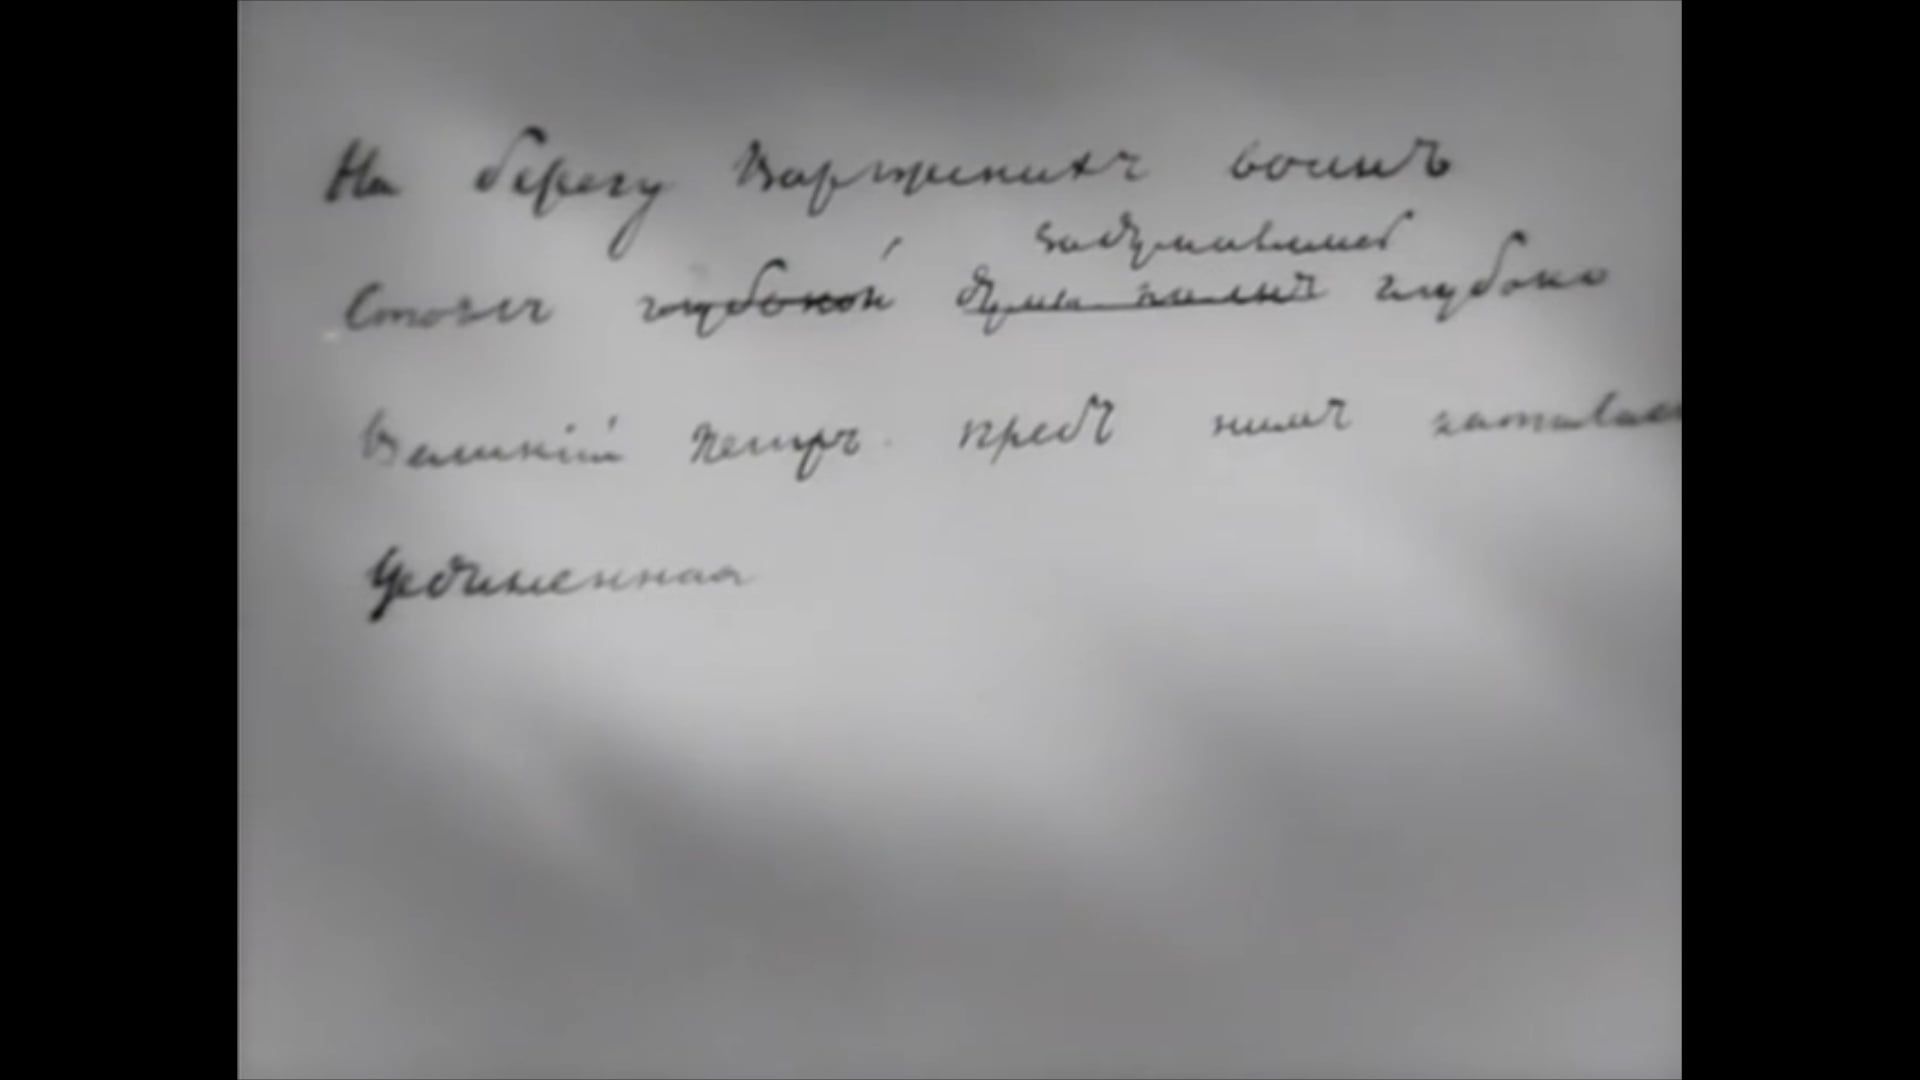 На берегу Варяжскихъ волнъ
задумавшись
Стоялъ глубокой думы полнъ глубоко
Великій Петръ. предъ нимъ катилась
Уединенная